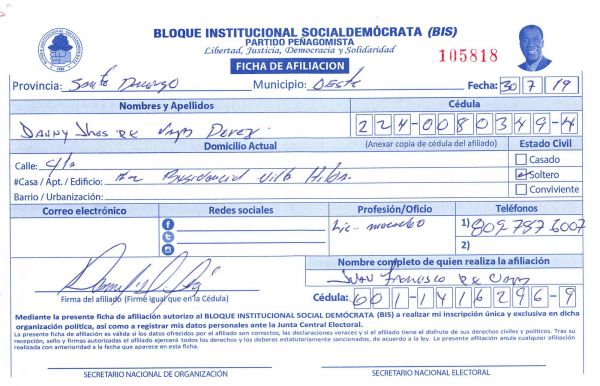 BLOQUE INSTITUCIONAL SOCIALDEMÓCRATA (BIS)
PARTIDO PEÑAGOMISTA
Libertad, Justicia, Democracia y Solidaridad
105818
FICHA DE AFILIACION
Provincia: Santo Domingo Municipio: Oeste Fecha: 30 7 19
Nombres y Apellidos Cédula
Danny 224-0080349-4
Domicilio Actual (Anexar copia de cédula del afiliado) Estado Civil
Calle: C/1a Casado
#Casa / Apt. / Edificio: Residencial Villa Soltero
Barrio / Urbanización: Conviviente
Correo electrónico Redes sociales Profesión/Oficio Teléfonos
Lic. 1) 809 787 6007
2)
Nombre completo de quien realiza la afiliación
Juan Francisco
Firma del afiliado (Firme igual que en la Cédula) Cédula: 001-1416296-9
Mediante la presente ficha de afiliación autorizo al BLOQUE INSTITUCIONAL SOCIAL DEMÓCRATA (BIS) a realizar mi inscripción única y exclusiva en dicha
organización política, así como a registrar mis datos personales ante la Junta Central Electoral.
La presente ficha de afiliación es válida si los datos ofrecidos por el afiliado son correctos, las declaraciones veraces y si el afiliado tiene el disfrute de sus derechos civiles y políticos. Tras su
recepción, sello y firmas autorizadas el afiliado ejercerá todos los derechos y los deberes estatutariamente sancionados, de acuerdo a la ley. La presente afiliación anula cualquier afiliación
realizada con anterioridad a la fecha que aparece en esta ficha.
SECRETARIO NACIONAL DE ORGANIZACIÓN SECRETARIO NACIONAL ELECTORAL